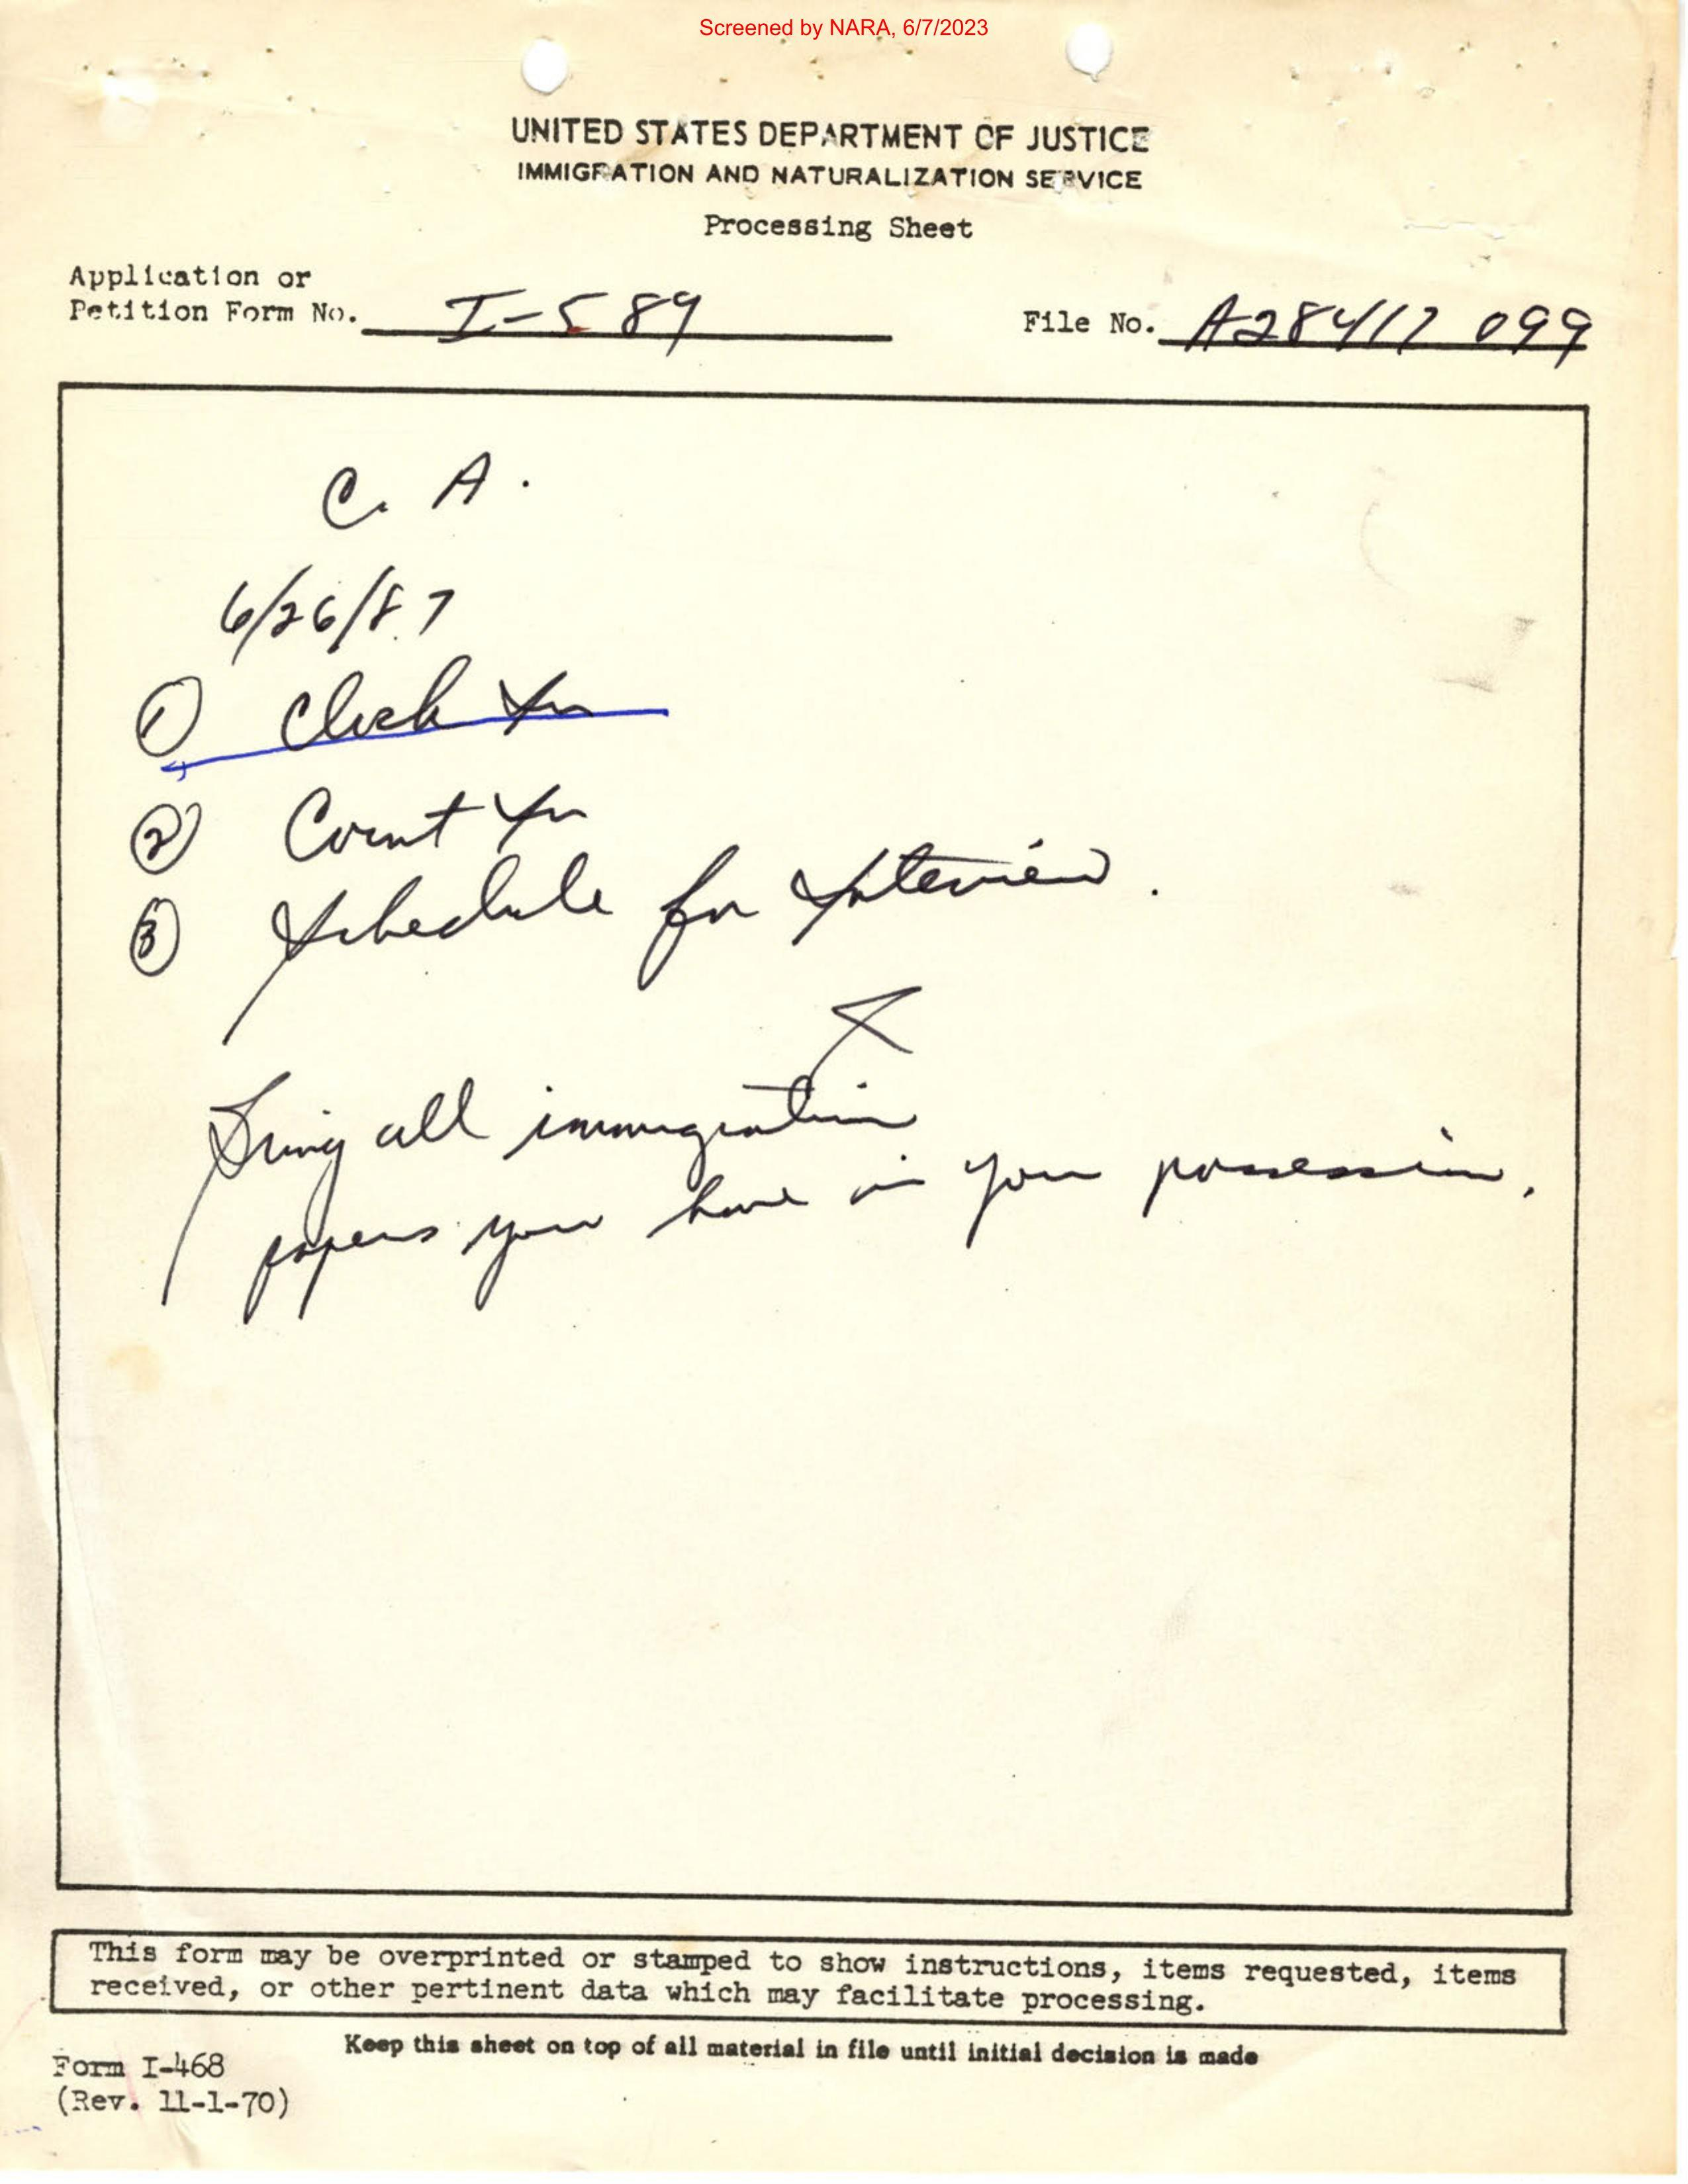 Screened by NARA, 6/7/2023
UNITED STATES DEPARTMENT OF JUSTICE
IMMIGRATION AND NATURALIZATION SERVICE
Processing Sheet
Application or
Petition Form No. I-589
File No. A28417 099
C. A.
6/26/87
① Clock In
② Count In
③ Schedule for Interview.
Bring all immigration
papers you have in your possession.
This form may be overprinted or stamped to show instructions, items requested, items
received, or other pertinent data which may facilitate processing.
Keep this sheet on top of all material in file until initial decision is made
Form I-468
(Rev. 11-1-70)